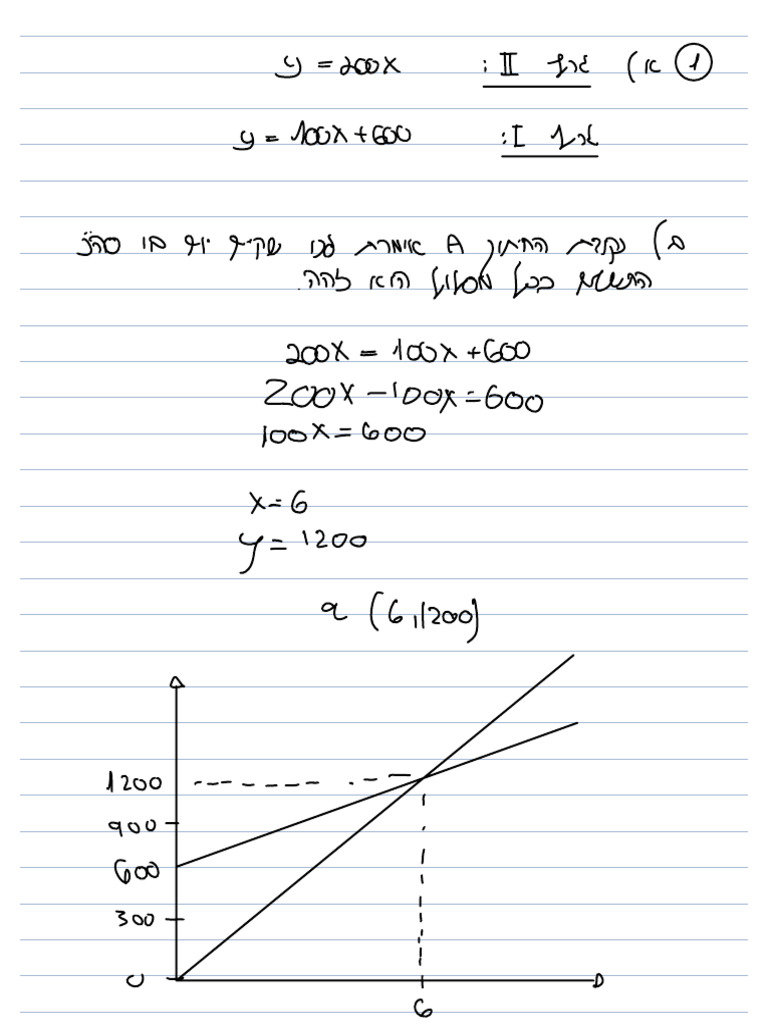 ① א) גרף II : y = 200x
גרף I : y = 100x + 600
ב) נקודת החיתוך A אומרת לנו שקיים יום בו סה"כ
התשלום בכל מסלול הוא זהה.
200x = 100x + 600
200x - 100x = 600
100x = 600
x = 6
y = 1200
a (6,1200)
1200
900
600
300
0
6